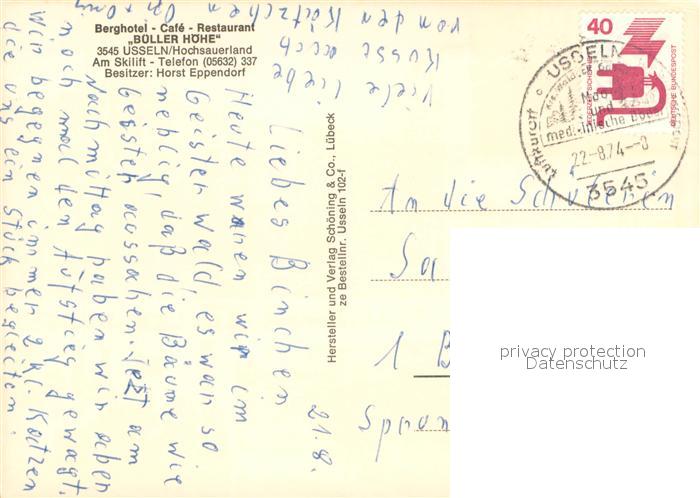 Berghotel - Café - Restaurant
„BÜLLER HÖHE"
3545 USSELN/Hochsauerland
Am Skilift - Telefon (05632) 337
Besitzer: Horst Eppendorf
21.8.
Liebes Binchen
Heute waren wir im
Geisterwald es war so
neblig, daß die Bäume wie
Gebster aussahen. Jetzt am
Nachmittag haben wir eben
noch mal den Aufstieg gewagt.
Wir begegnen immer 2 kl. Katzen
die uns ein Stück begleiten.
Viele liebe
Küsse auch
von den Kätzchen
Opi + Omi
Hersteller und Verlag Schöning & Co., Lübeck
ze Bestellnr. Usseln 102-f
40
DEUTSCHE BUNDESPOST
USSELN
Luftkurort
und
22.-8.74-8
3545
An die Schülerin
Sa
1 B
Span
privacy protection
Datenschutz